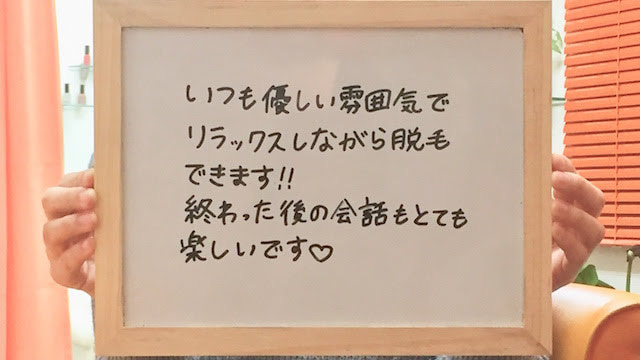 いつも優しい雰囲気で
リラックスしながら脱毛
できます!!
終わった後の会話もとても
楽しいです♡